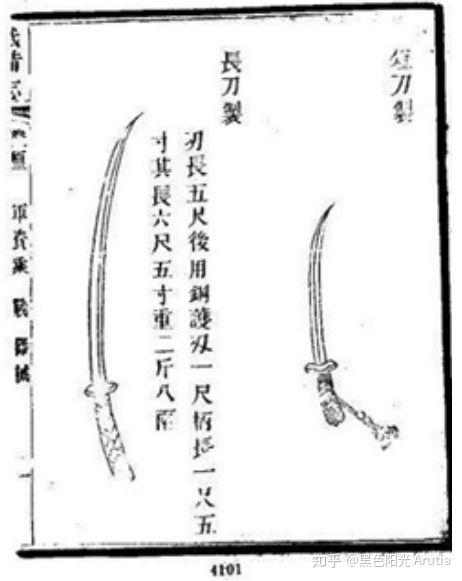 短刀製
長刀製
刃長五尺後用銅護刃一尺柄長一尺五
寸其長六尺五寸重二斤八兩
武備志
軍資乘 戰 器械
4101
知乎 @黑色阳光 Arutia